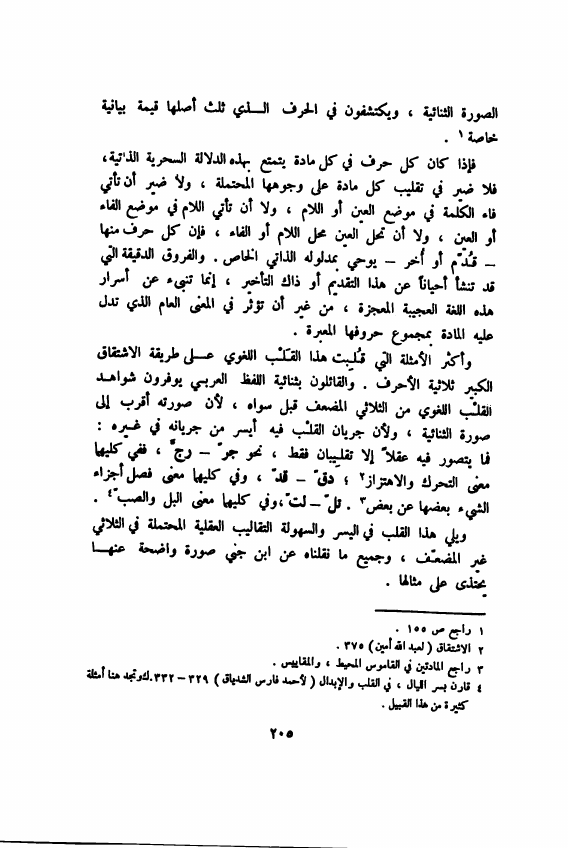 الصورة الثنائية ، ويكتشفون في الحرف الـــذي ثلث أصلها قيمة بيانية
خاصة ١ .
فإذا كان كل حرف في كل مادة يتمتع بهذه الدلالة السحرية الذاتية،
فلا ضير في تقليب كل مادة على وجوهها المحتملة ، ولا ضير أن تأتي
فاء الكلمة في موضع العين أو اللام ، ولا أن تأتي اللام في موضع الفاء
أو العين ، ولا أن تحل العين محل اللام أو الفاء ، فإن كل حرف منها
– قُدّم أو أُخر – يوحي بمدلوله الذاتي الخاص . والفروق الدقيقة التي
قد تنشأ أحياناً عن هذا التقديم أو ذاك التأخير ، إنما تنبىء عن أسرار
هذه اللغة العجيبة المعجزة ، من غير أن تؤثر في المعنى العام الذي تدل
عليه المادة بمجموع حروفها المعبرة .
وأكثر الأمثلة التي قُلبت هذا القلب اللغوي عـــلى طريقة الاشتقاق
الكبير ثلاثية الأحرف . والقائلون بثنائية اللفظ العربي يوفرون شواهـد
القلب اللغوي من الثلاثي المضعف قبل سواه ، لأن صورته أقرب إلى
صورة الثنائية ، ولأن جريان القلب فيه أيسر من جريانه في غـيره :
فما يتصور فيه عقلاً إلا تقليبان فقط ، نحو جرّ – رجّ ، ففي كليهما
معنى التحرك والاهتزاز ٢ ؛ دقّ – قدّ ، وفي كليهما معنى فصل أجزاء
الشيء بعضها عن بعض ٣ . تلّ – لتّ ، وفي كليهما معنى البل والصب ٤ .
ويلي هذا القلب في اليسر والسهولة التقاليب العقلية المحتملة في الثلاثي
غير المضعّف ، وجميع ما نقلناه عن ابن جني صورة واضحة عنهـــا
يحتذى على مثالها .
١ راجع ص ١٥٥ .
٢ الاشتقاق ( لعبد الله أمين ) ٣٧٥ .
٣ راجع المادتين في القاموس المحيط ، والمقاييس .
٤ قارن بسر الليال ، في القلب والإبدال ( لأحمد فارس الشدياق ) ٣٢٩ – ٣٣٢. وتجد هنا أمثلة
كثيرة من هذا القبيل .
٢٠٥